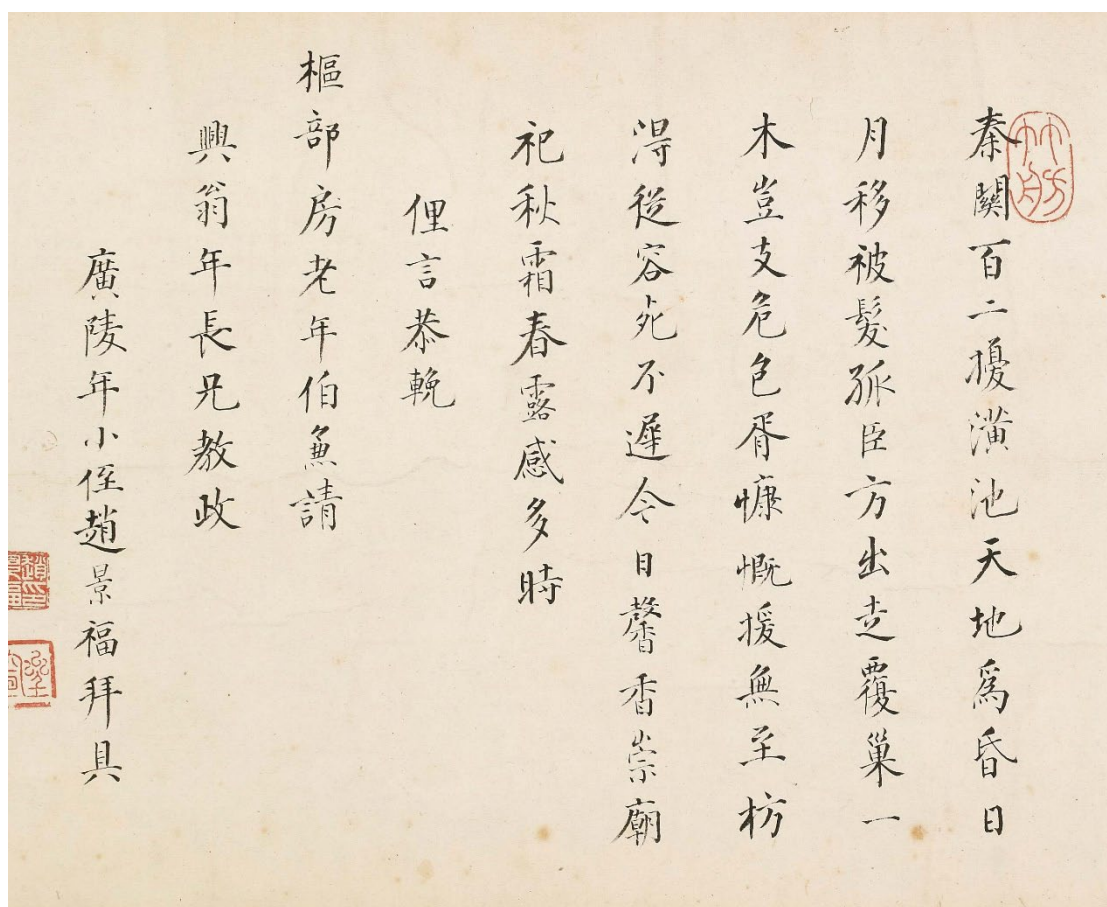 秦關百二擾潢池天地為昏日
月移被髮孤臣方出走覆巢一
木豈支危色胥慷慨援無至枋
得從容死不遲今日馨香崇廟
祀秋霜春露感多時
俚言恭輓
樞部房老年伯兼請
興翁年長兄教政
廣陵年小侄趙景福拜具